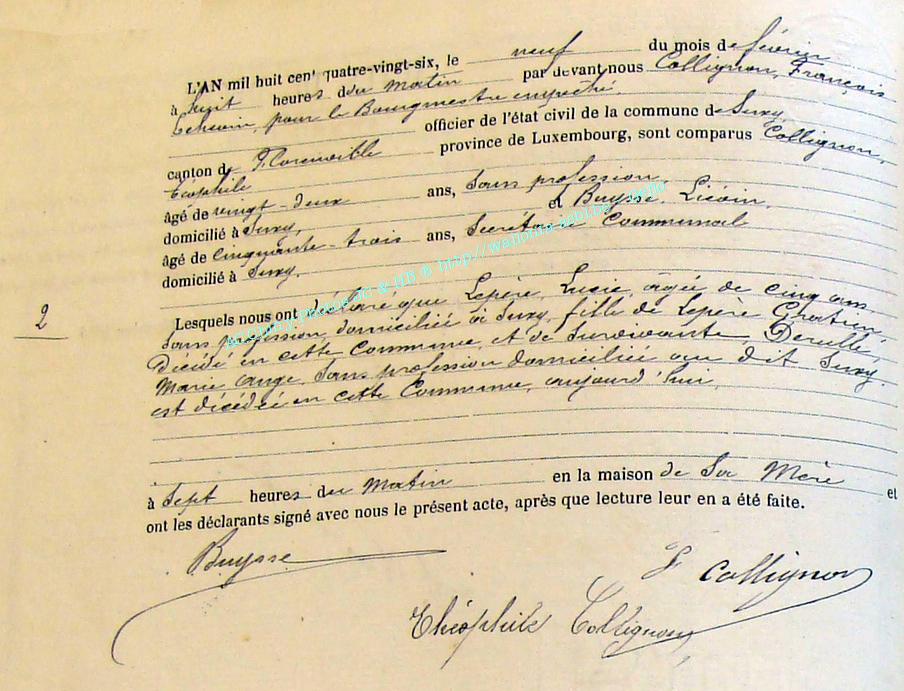 L'AN mil huit cent quatre-vingt-six, le neuf du mois de février
à huit heures du Matin par devant nous Collignon, François
Echevin, pour le Bourgmestre empeché.
officier de l'état civil de la commune de Suxy,
canton de Florenville province de Luxembourg, sont comparus Collignon,
Téophile
âgé de vingt-deux ans, Sans profession,
domicilié à Suxy, et Buysse, Liévin,
âgé de cinquante-trois ans, Secrétaire Communal
domicilié à Suxy.
2
Lesquels nous ont déclaré que Lepère, Lucie, agée de cinq ans
sans profession, domiciliée à Suxy, fille de Lepère Gratien
Décédé en cette Commune, et de Survivante,
Marie ange, Sans profession domiciliée au dit Suxy.
est décédée en cette Commune, aujourd'hui,
à Sept heures du Matin en la maison de Sa Mère et
ont les déclarants signé avec nous le présent acte, après que lecture leur en a été faite.
Buysse
F Collignon
Théophile Collignon